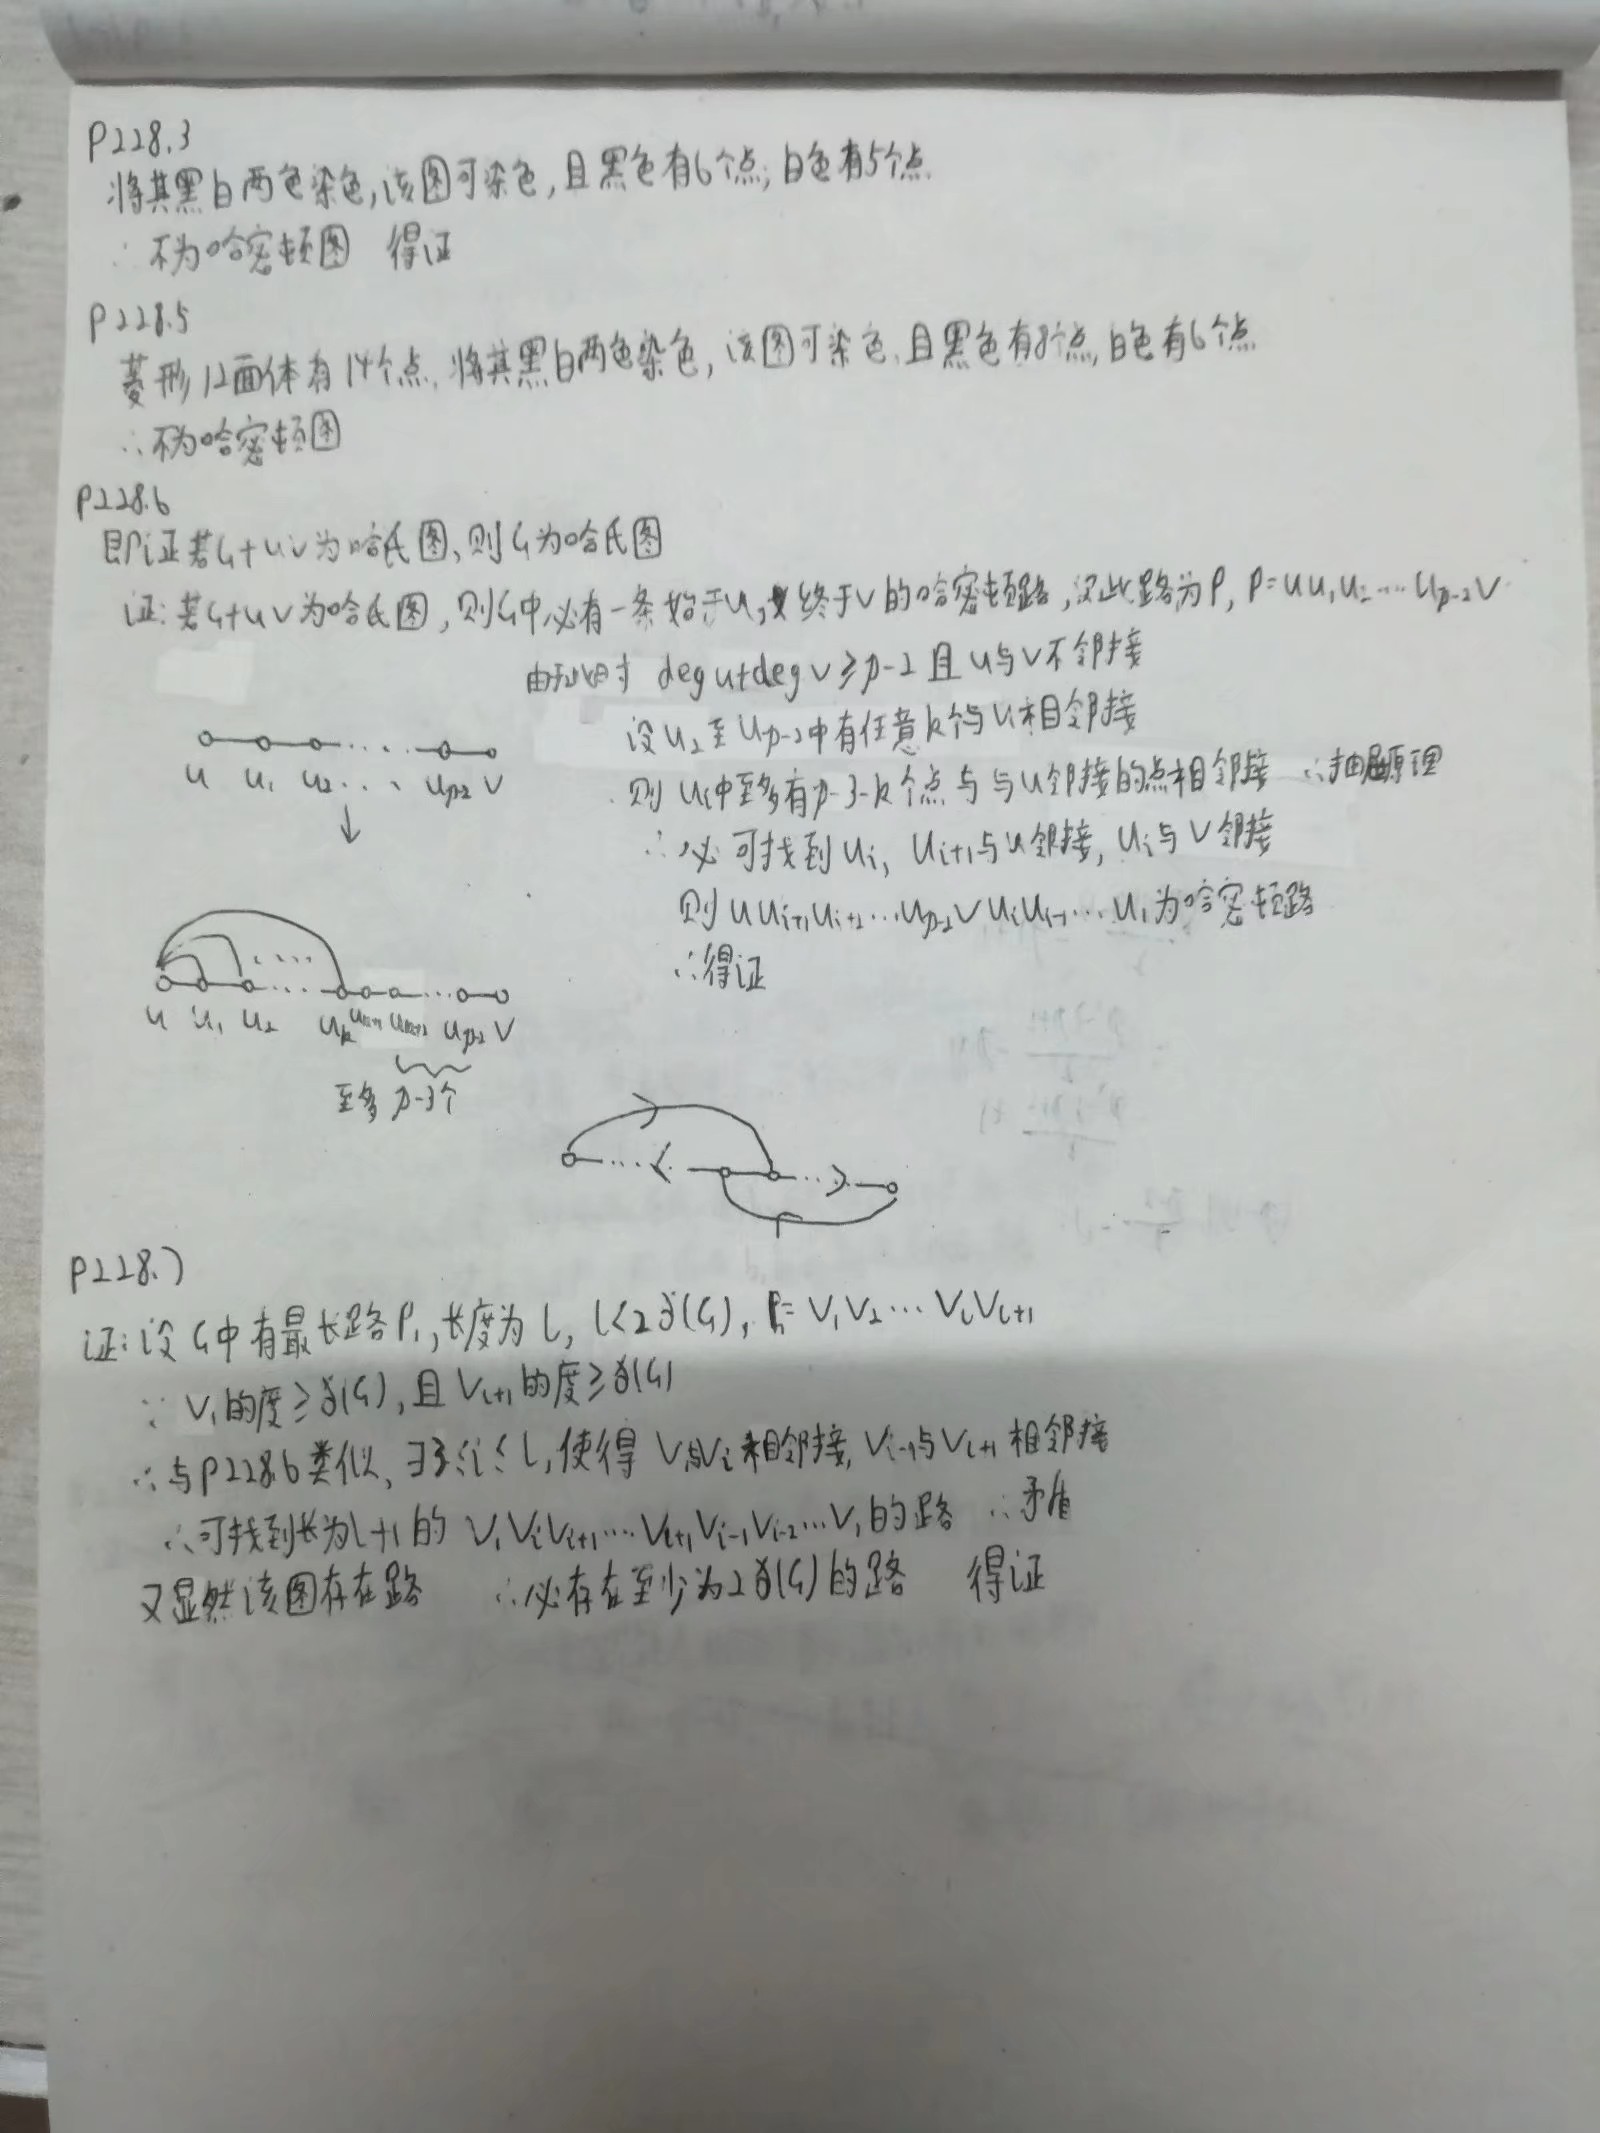 P228.3
将其黑白两色染色,该图可染色,且黑色有6个点;白色有5个点.
∴ 不为哈密顿图 得证
P228.5
菱形12面体有14个点,将其黑白两色染色,该图可染色,且黑色有8个点,白色有6个点
∴不为哈密顿图
P228.6
即证若G+uv为哈氏图,则G为哈氏图
证:若G+uv为哈氏图,则G中必有一条始于u,终于v的哈密顿路,设此路为P, P=uu₁u₂…u_{p-2}v
由于此时 deg u+deg v≥p-2 且 u与v不邻接
设u₂至u_{p-2}中有任意k个与u相邻接
则 uᵢ中至多有p-3-k个点与与u邻接的点相邻接 ∴抽屉原理
∴必可找到uᵢ, uᵢ₊₁与u邻接, uᵢ与v邻接
则 uuᵢ₊₁uᵢ₊₂…u_{p-2}vuᵢuᵢ₋₁…u₁为哈密顿路
∴得证
u u₁ u₂ … u_{p-2} v
↓
u u₁ u₂ u_k u_{k+1} u_{k+2} u_{p-2} v
至多 p-3个
P228.7
证:设G中有最长路P₁,长度为l, l<2δ(G), P₁=v₁v₂…v_lv_{l+1}
∵ v₁的度≥δ(G),且v_{l+1}的度≥δ(G)
∴与P228.6类似,∃3≤i≤l,使得v₁与vᵢ相邻接,vᵢ₋₁与v_{l+1}相邻接
∴可找到长为l+1的 v₁vᵢvᵢ₊₁…v_{l+1}vᵢ₋₁vᵢ₋₂…v₁的路 ∴矛盾
又显然该图存在路 ∴必存在至少为2δ(G)的路 得证